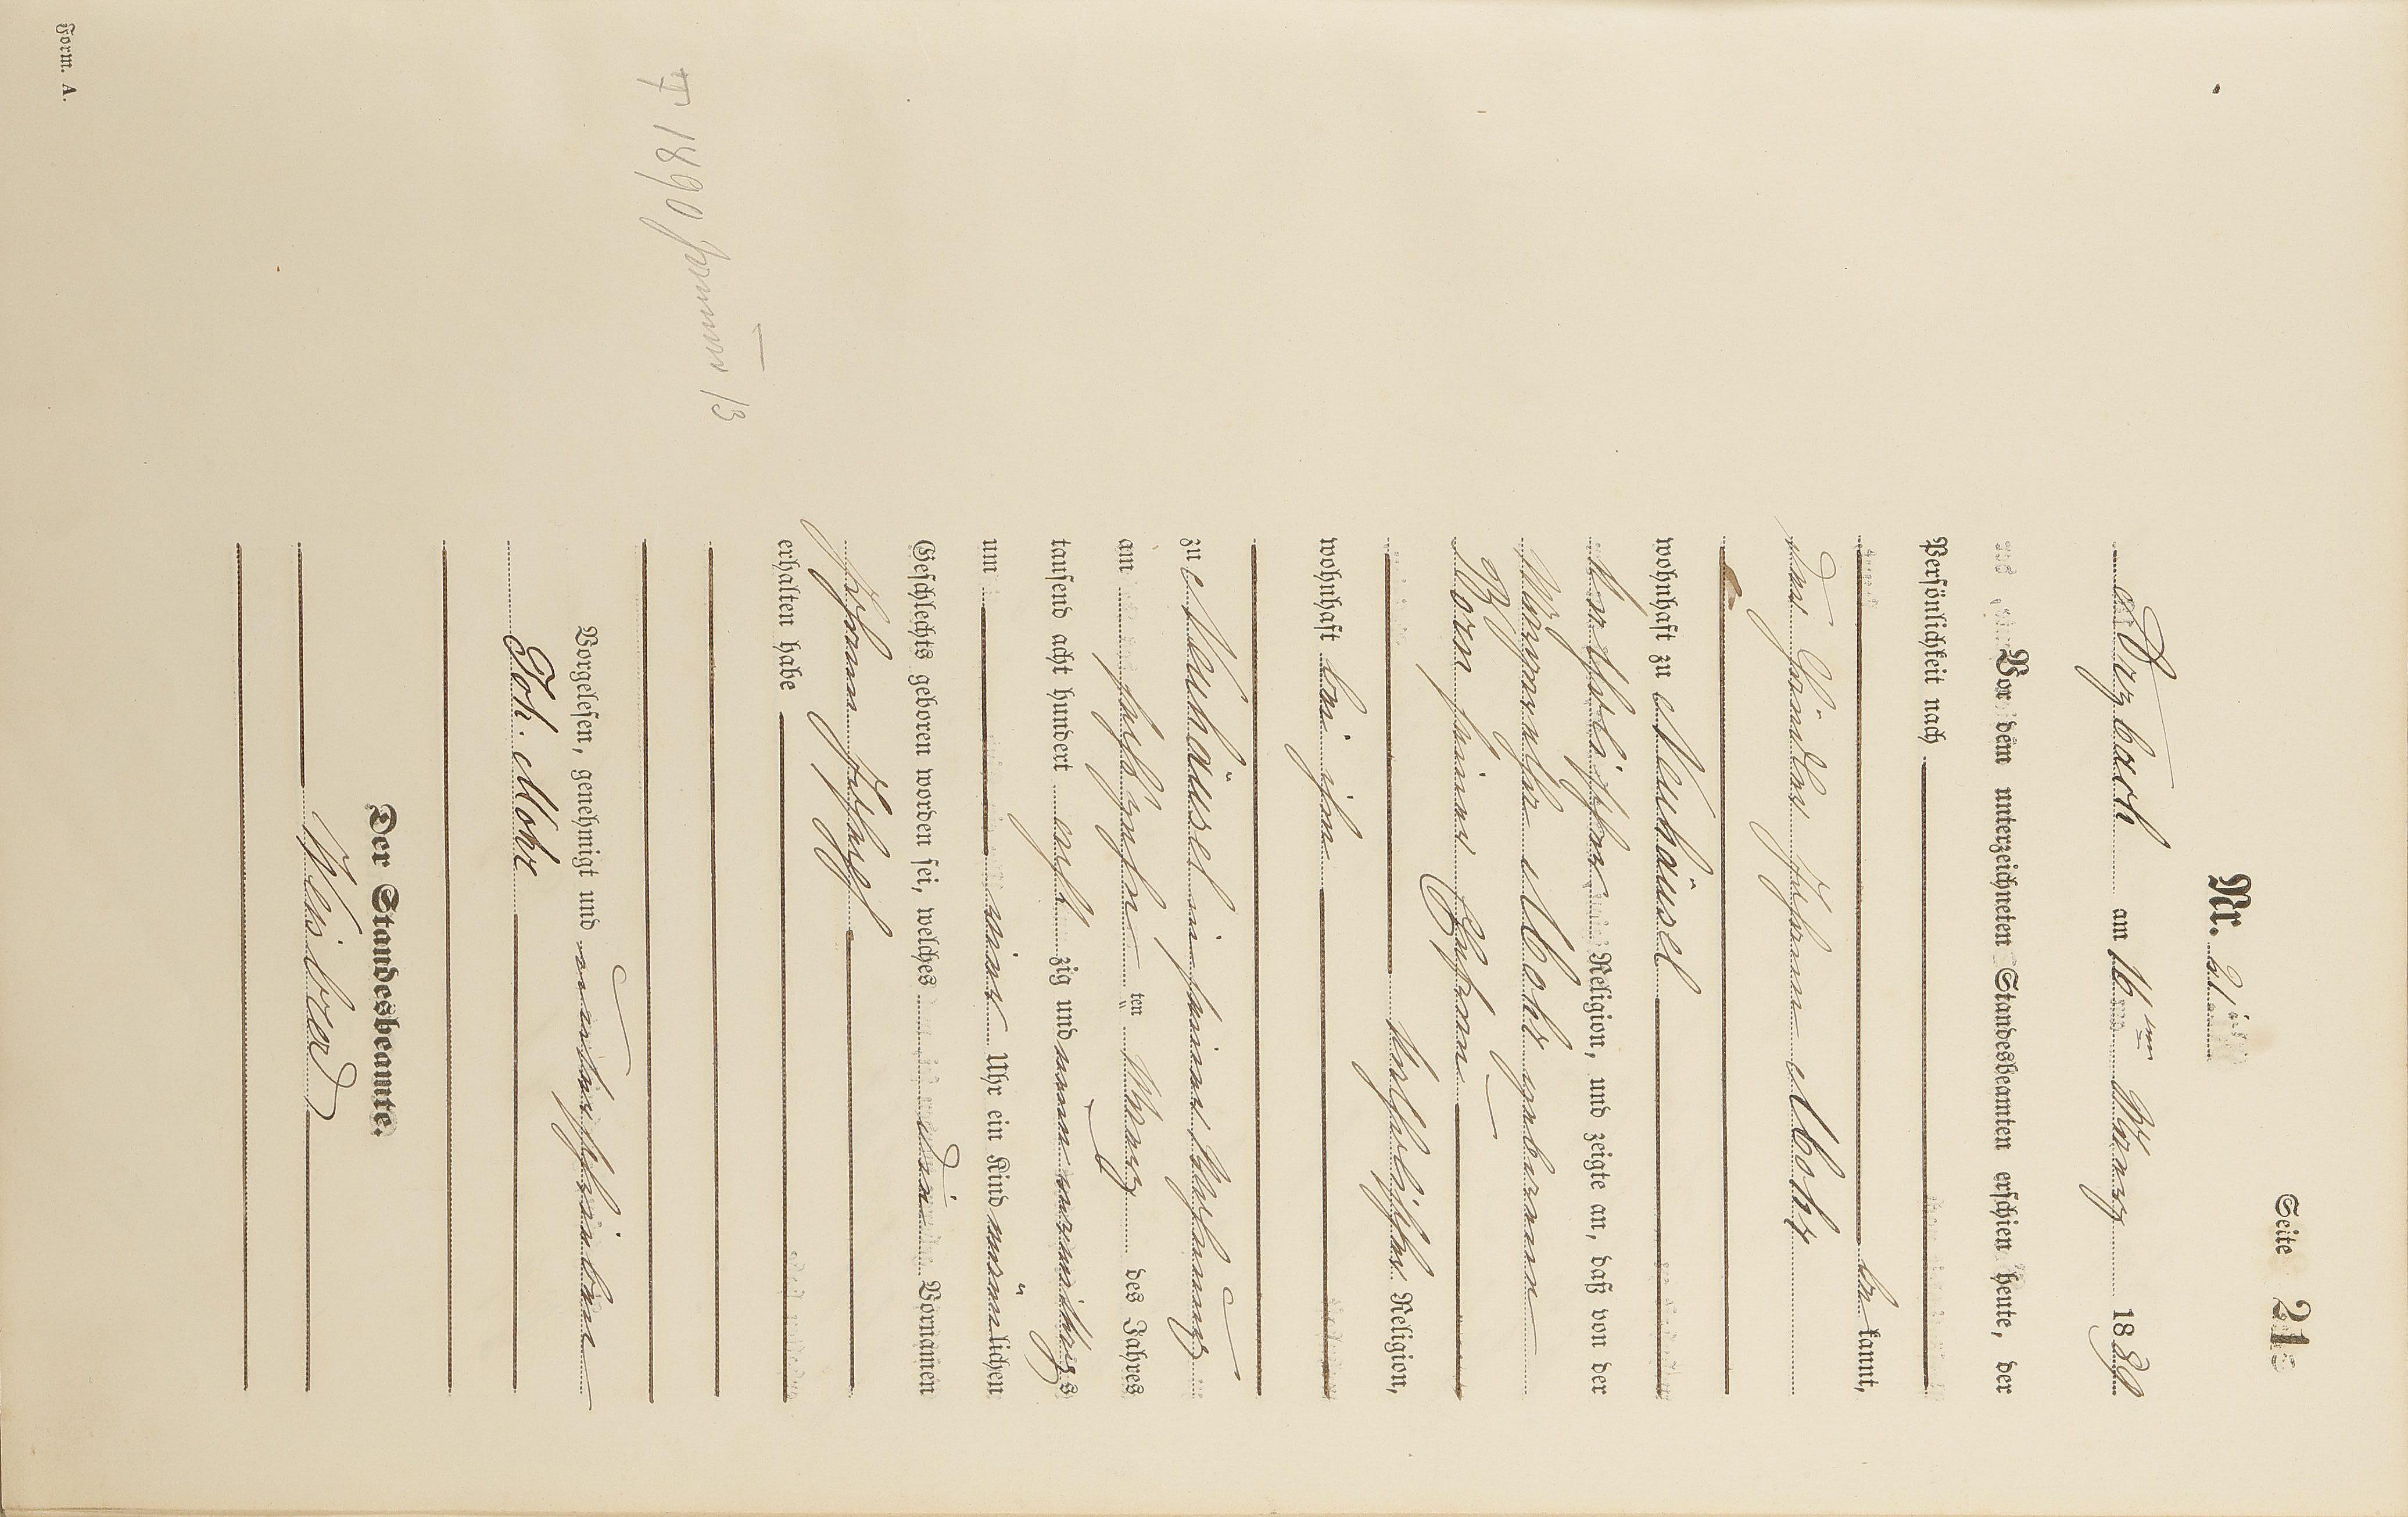 Seite 21
Nr. 21
Arzbach am 16ten März 1889
Vor dem unterzeichneten Standesbeamten erschien heute, der
Persönlichkeit nach
be kannt,
der Händler Johann Mohr
wohnhaft zu Neuhäusel
katholischer Religion, und zeigte an, daß von der
Margaretha Mohr geborenen
Born seiner Ehefrau
katholischer Religion,
wohnhaft bei ihm
zu Neuhäusel in seiner Wohnung
am sechszehn ten März des Jahres
tausend acht hundert acht zig und neun vormittags
um ein Uhr ein Kind männ lichen
Geschlechts geboren worden sei, welches die Vornamen
Johann Joseph
erhalten habe
Vorgelesen, genehmigt und unterschrieben
Joh. Mohr
Der Standesbeamte.
† 1890 Januar 13
Form. A.